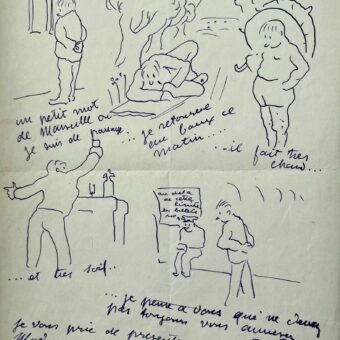 un petit mot
de Marseille où
je suis de passage...
... je retourne
aux baux ce
matin....
...il fait très
chaud...
... et très soif...
au delà
de cette
limite
... je pense à vous qui ne devez
pas toujours vous amuser
je vous prie de présenter